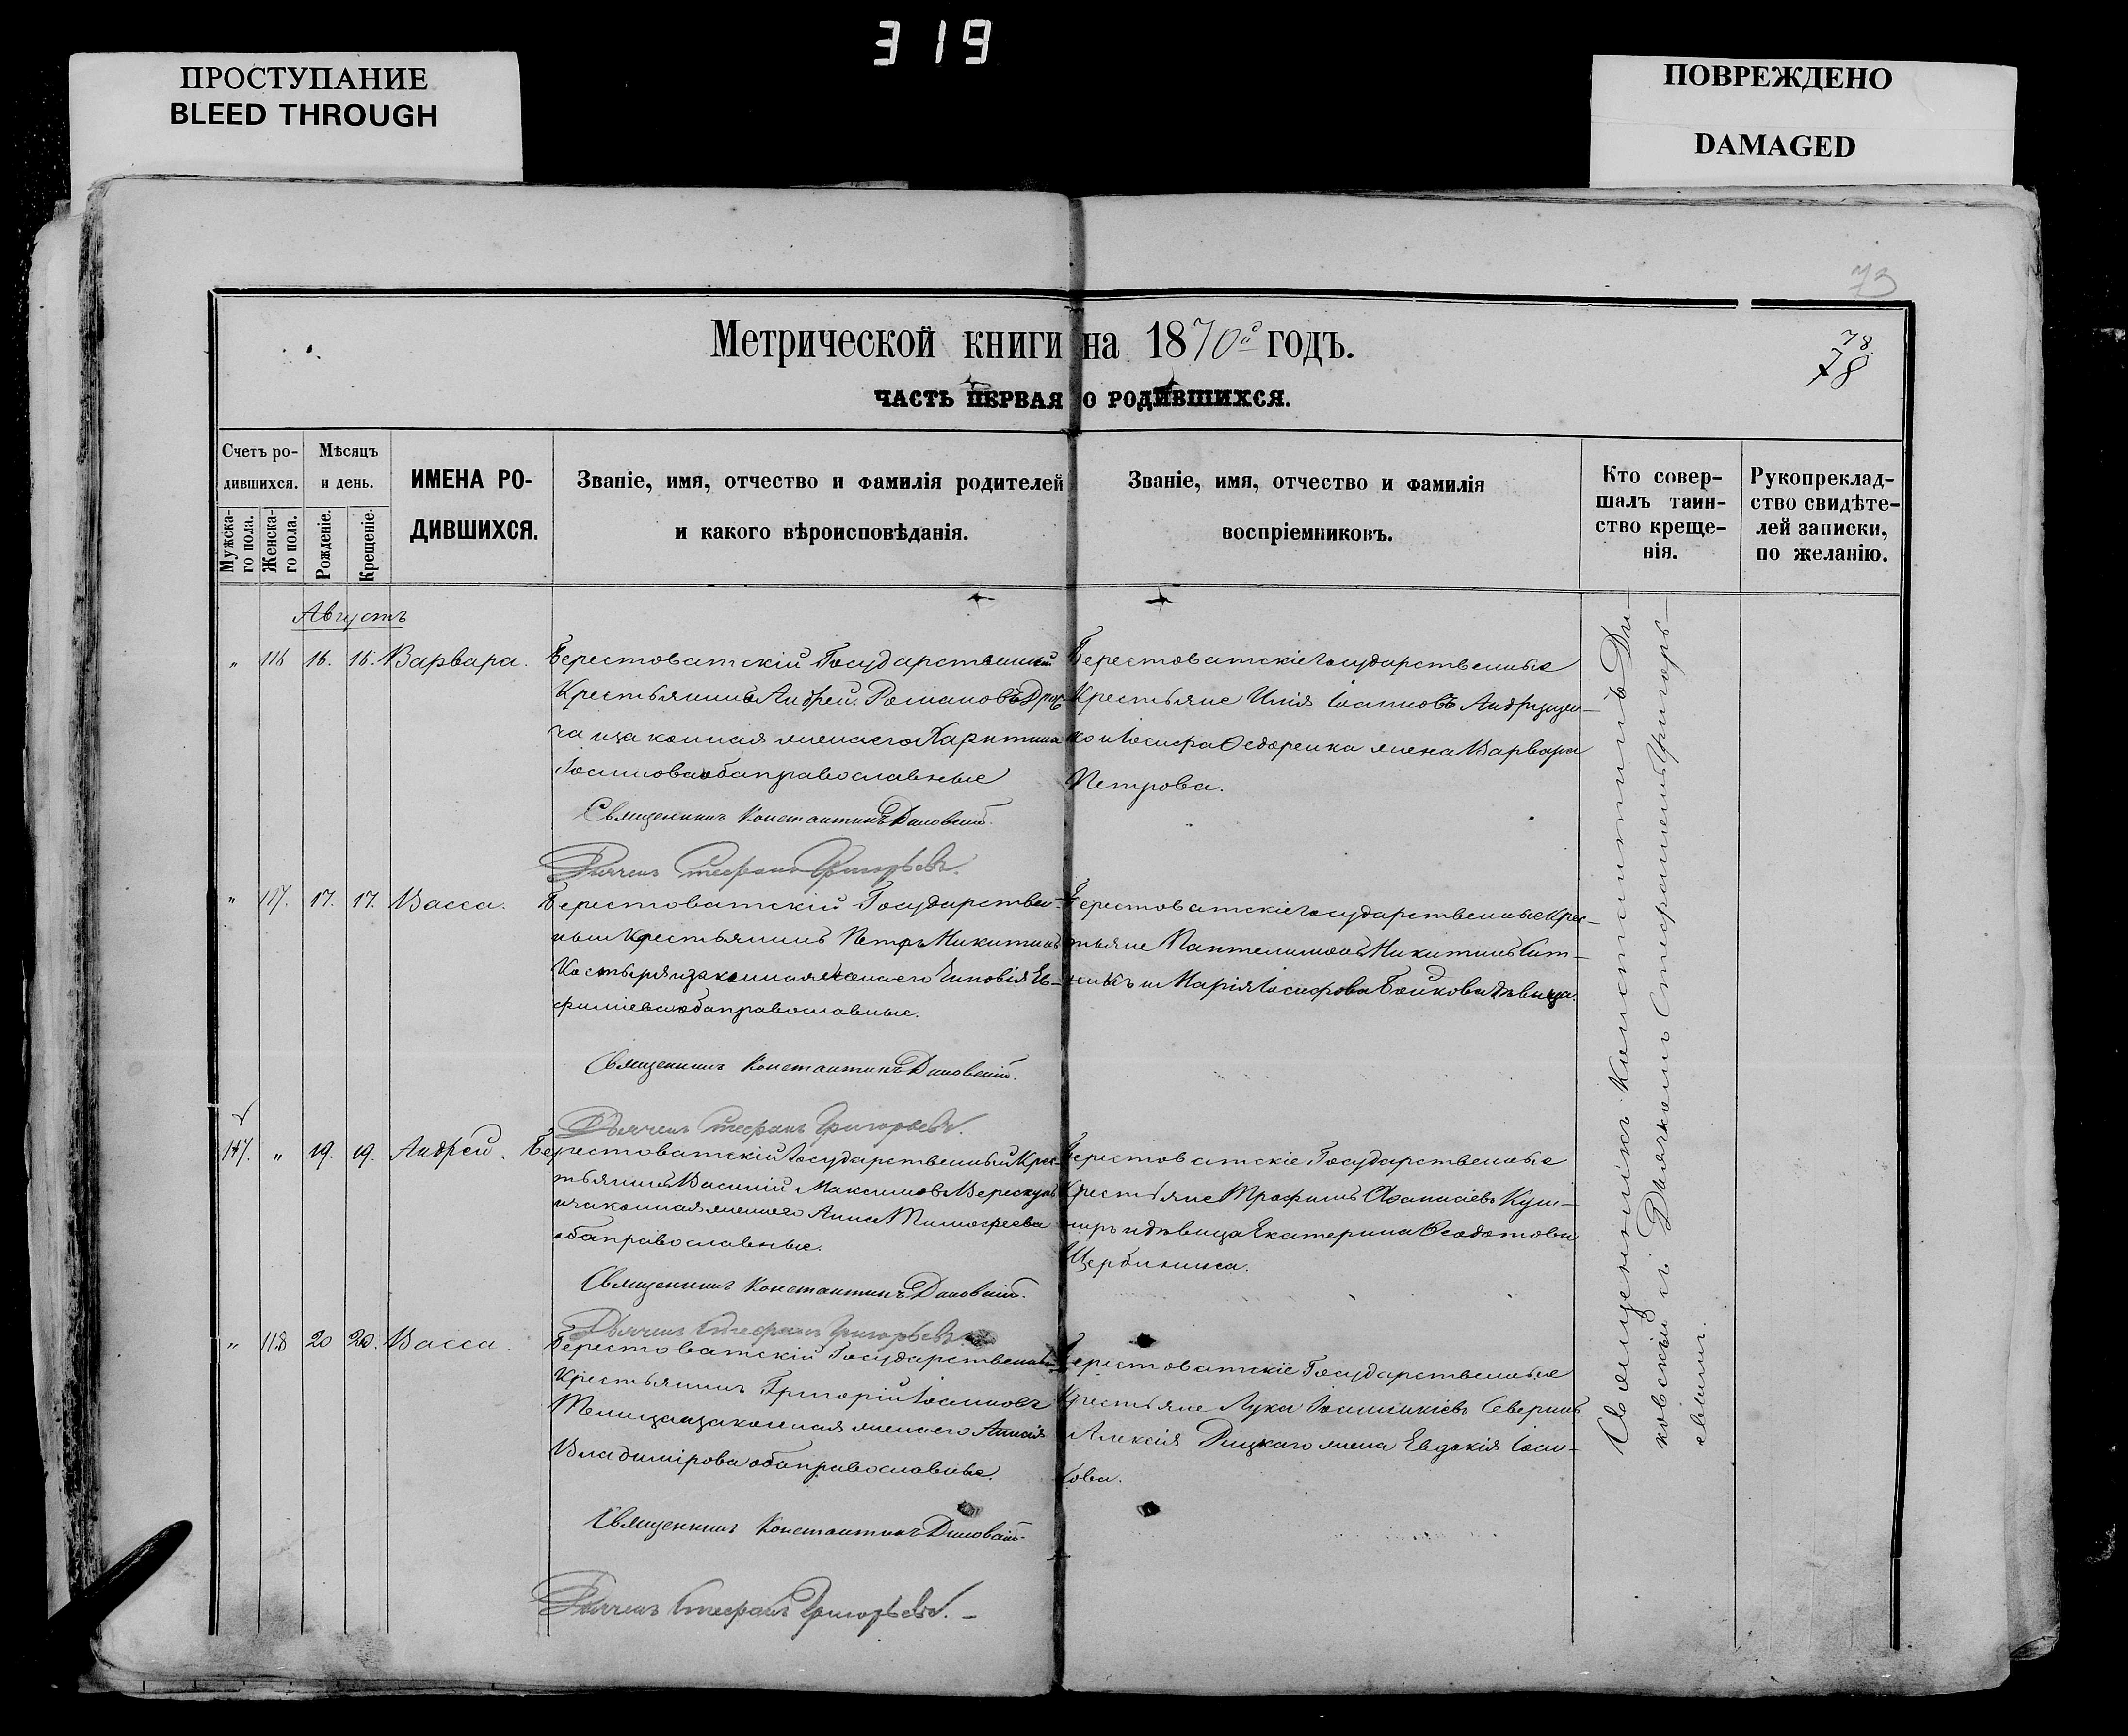 319
ПРОСТУПАНИЕ
BLEED THROUGH
ПОВРЕЖДЕНО
DAMAGED
73
78.
78
Метрической книги на 1870й годъ.
ЧАСТЬ ПЕРВАЯ О РОДИВШИХСЯ.
Счетъ ро-
дившихся.
Мужска-
го пола.
Женска-
го пола.
Мѣсяцъ
и день.
Рожденіе.
Крещеніе.
ИМЕНА РО-
ДИВШИХСЯ.
Званіе, имя, отчество и фамилія родителей
и какого вѣроисповѣданія.
Званіе, имя, отчество и фамилія
воспріемниковъ.
Кто совер-
шалъ таин-
ство креще-
нія.
Рукопреклад-
ство свидѣте-
лей записки,
по желанію.
Августъ
„ 116 16. 16. Варвара.
Берестоватскій Государственный
Крестьянинъ Андрей Романовъ
и законная жена его Харитина
Іоаннова оба православные
Священникъ Константинъ Диковскій.
Дьячекъ Стефанъ Григорьевъ.
Берестоватскіе Государственные
Крестьяне Илія Іоанновъ Андрущен-
ко и Іосифа Ѳедоренка жена Варвара
Петрова.
„ 117. 17. 17. Васса.
Берестоватскій Государствен-
ный Крестьянинъ Петръ Никитинъ
Костыря и законная жена его Зиновія Ев-
фиміева оба православные.
Священникъ Константинъ Диковскій.
Дьячекъ Стефанъ Григорьевъ.
Берестоватскіе Государственные Крес-
тьяне Пантелимонъ Никитинъ Сит-
никъ и Марія Іосифова Бойкова дѣвица.
147. „ 19. 19. Андрей.
Берестоватскій Государственный Крес-
тьянинъ Василій Максимовъ Верескунъ
и законная жена его Анна Тимофеева
оба православные.
Священникъ Константинъ Диковскій.
Дьячекъ Стефанъ Григорьевъ.
Берестоватскіе Государственные
Крестьяне Трофимъ Аѳанасіевъ Куш-
ниръ и дѣвица Екатерина Ѳеодотова
Щербинина.
„ 118 20 20. Васса.
Берестоватскій Государственный
Крестьянинъ Григорій Іоанновъ
Телица и законная жена его
Владимірова оба православные.
Священникъ Константинъ Диковскій.
Дьячекъ Стефанъ Григорьевъ. –
Берестоватскіе Государственные
Крестьяне Лука Іоанникіевъ Северинъ
Алексія Рицкаго жена Евдокія Іоан-
нова.
Священникъ Константинъ Ди-
ковскій съ Дьячкомъ Стефаномъ Григорь-
евымъ.